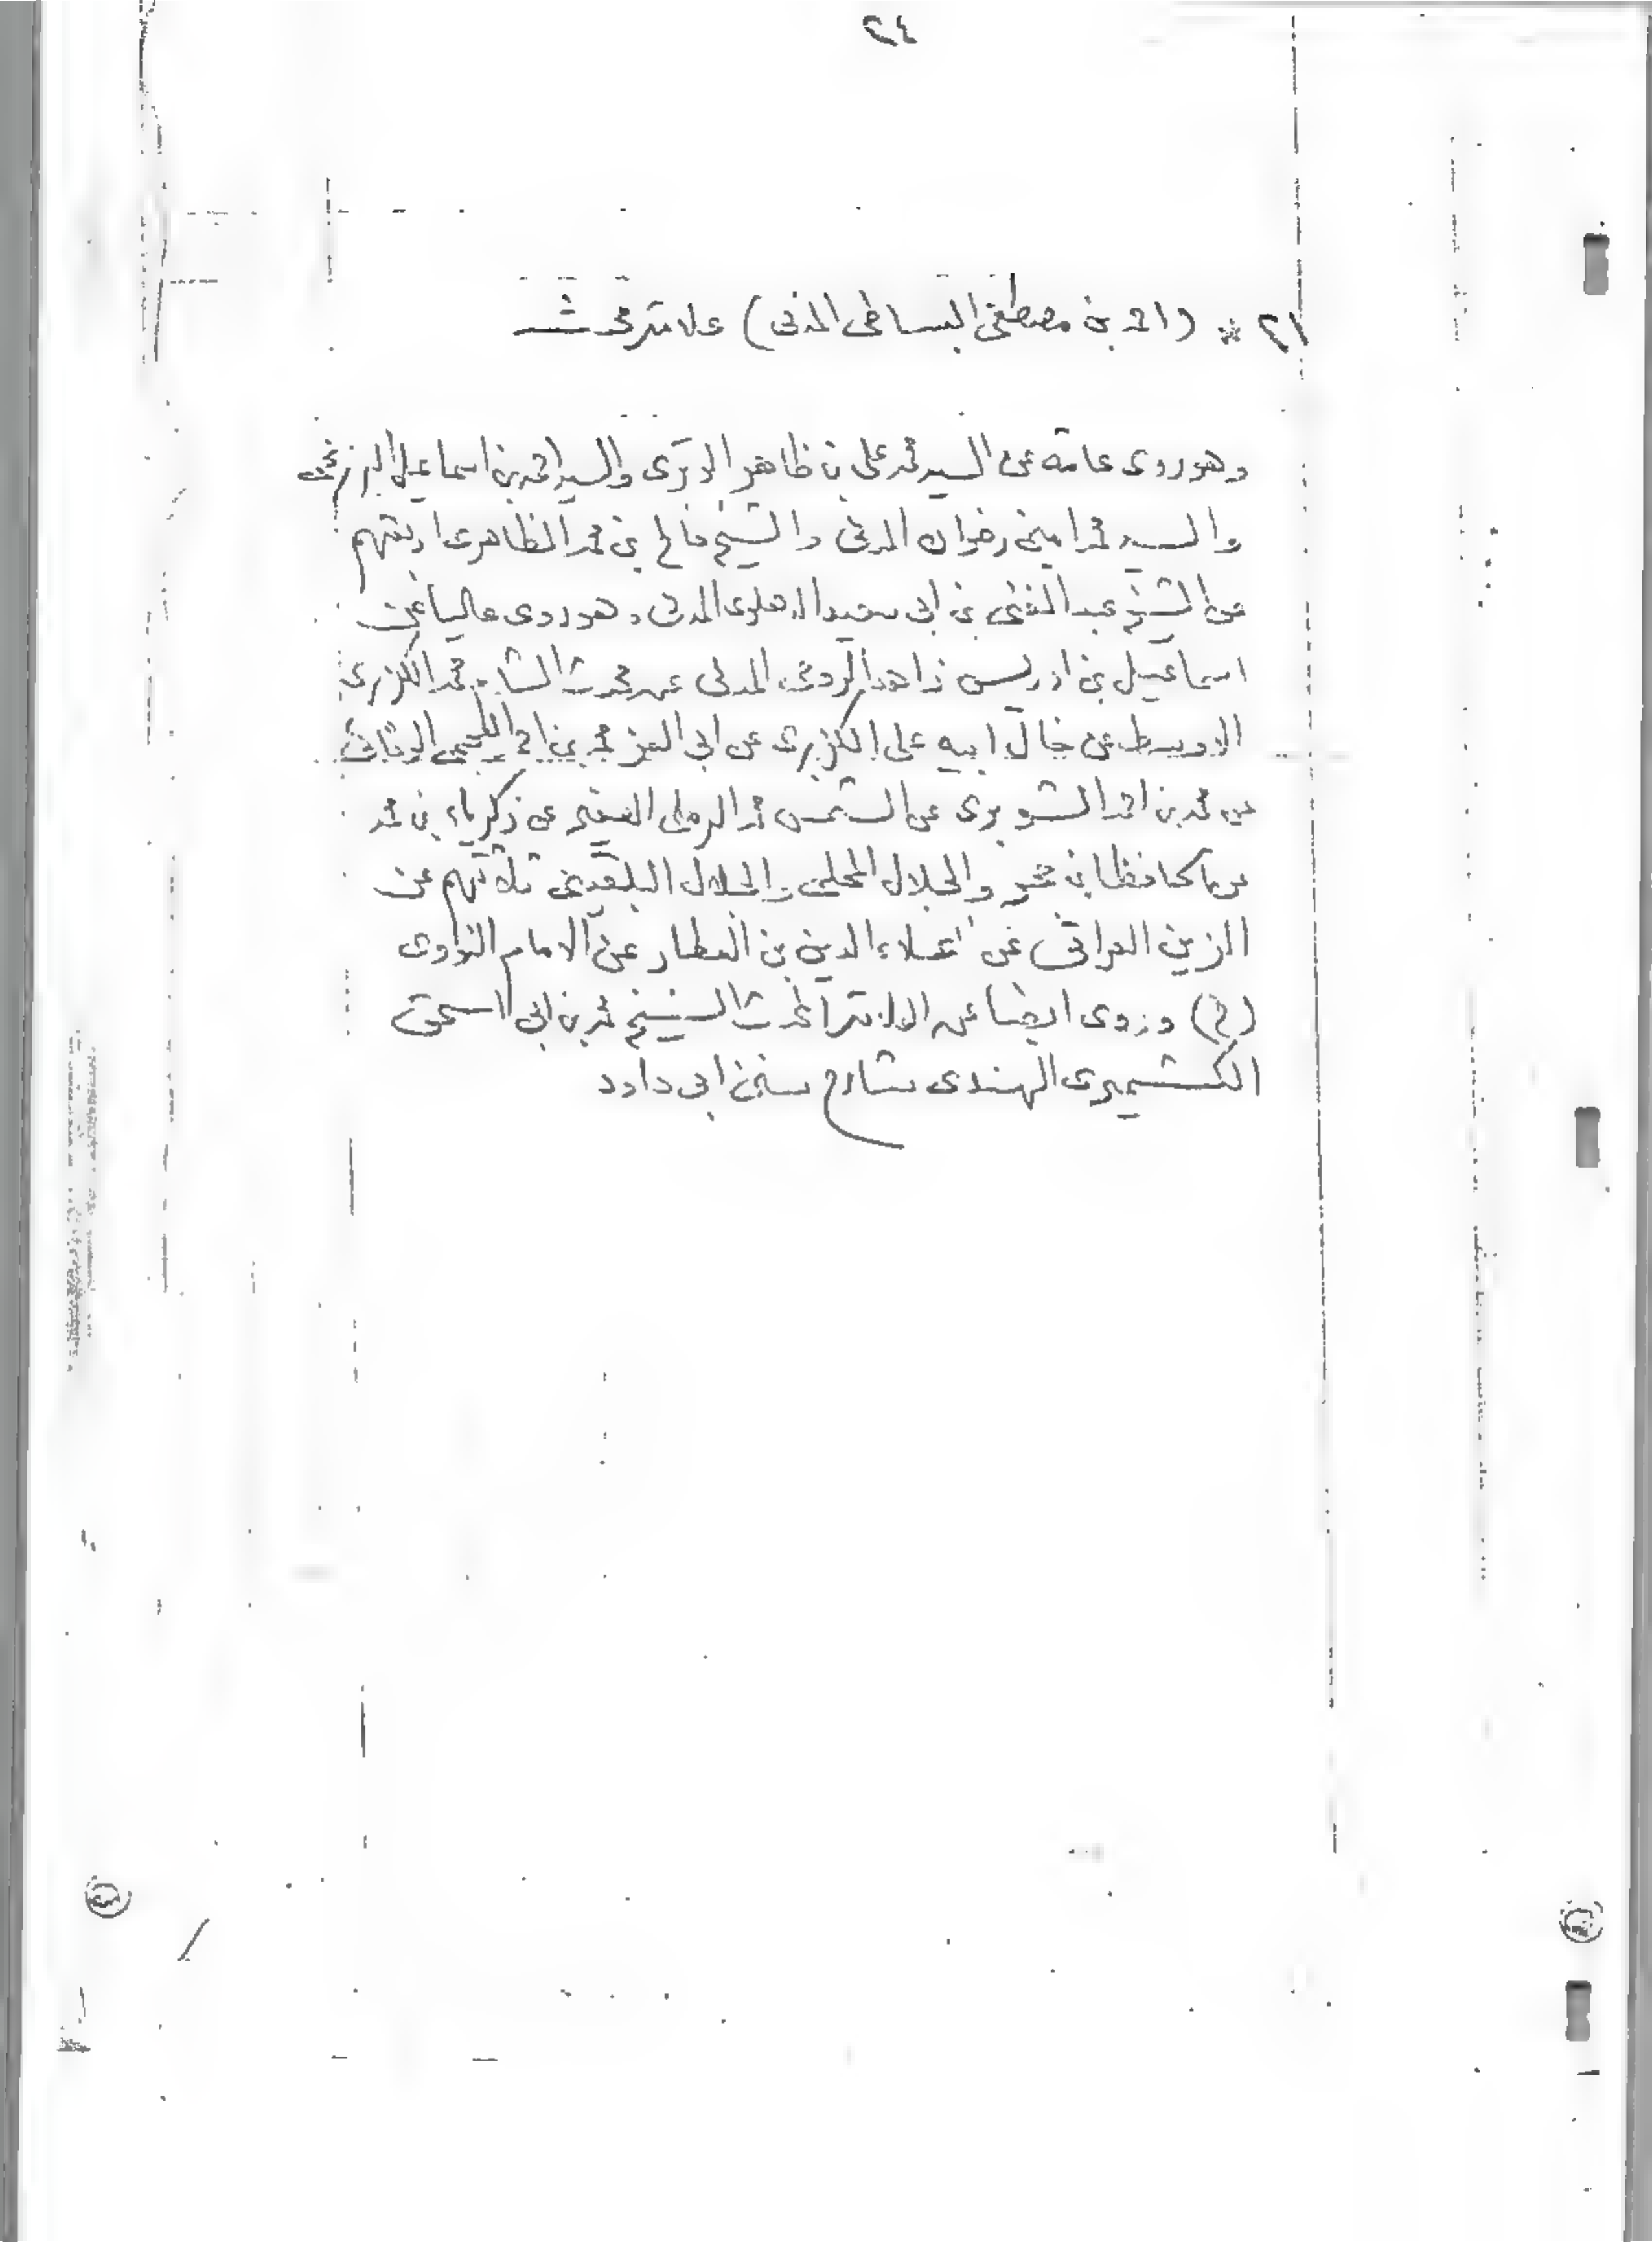 ٢٤
٢١ * (احمد بن مصطفى البساطى المدنى) علامة محدث
وهو روى عامة عن السيد محمد على بن ظاهر الوترى والسيد احمد بن اسماعيل البرزنجى
والسيد محمد امين رضوان المدنى والشيخ فالح بن محمد الظاهرى اربعتهم
عن الشيخ عبد الغنى بن ابى سعيد الدهلوى المدنى وهو روى عاليا عن
اسماعيل بن ادريس زاهد الرومى المدنى عن محدث الشام محمد الكزبرى
الاوسط عن خال ابيه على الكزبرى عن ابى العز محمد بن احمد العجمى الوفائى
عن محمد بن احمد الشوبرى عن الشمس محمد الرملى الصغير عن زكرياء بن محمد
عن الحافظ ابن حجر والجلال المحلى والجلال البلقينى ثلاثتهم عن
الزين العراقى عن علاء الدين بن العطار عن الامام النواوى
(ح) وروى ايضا عن العلامة المحدث الشيخ محمد بن ابى اسحق
الكشميرى الهندى شارح سنن ابى داود